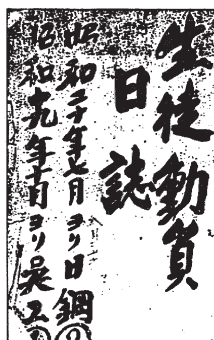 生徒動員
日誌
昭和二十年七月ヨリ日鋼
昭和十九年十月ヨリ呉工